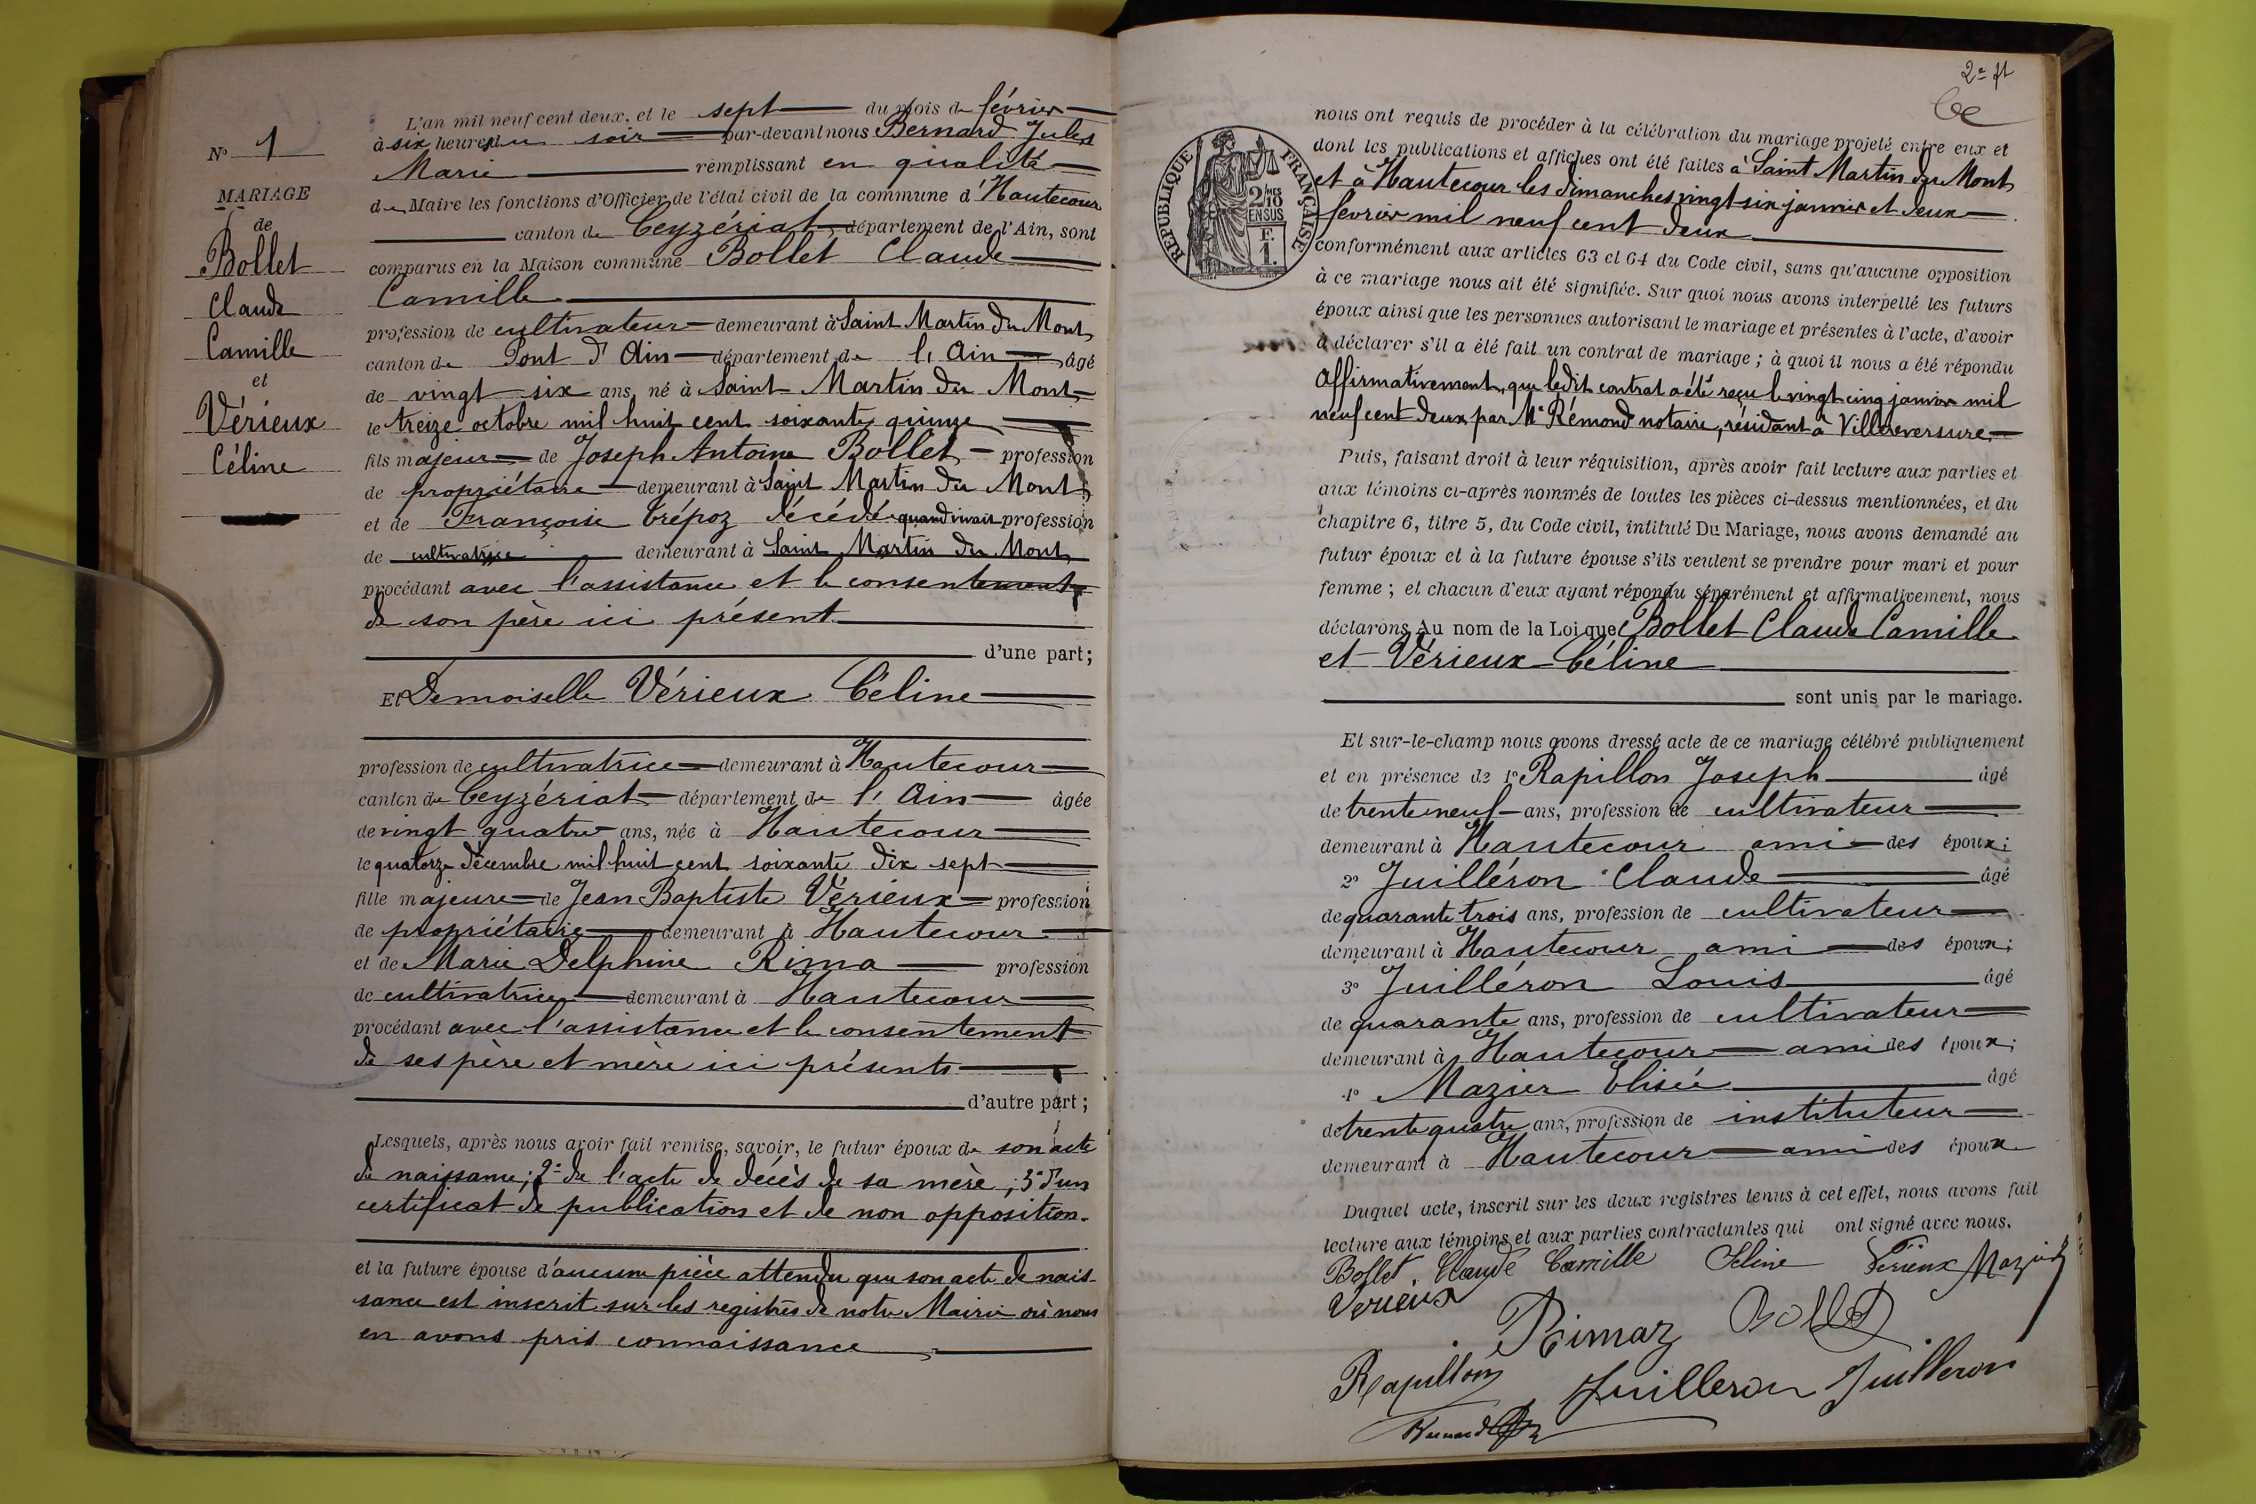 N° 1
MARIAGE
de
Bollet
Claude
Camille
et
Vérieux
Céline
L'an mil neuf cent deux, et le sept du mois de février
à six heures du soir par-devant nous Bernard Jules
Marie remplissant en qualité
de Maire les fonctions d'Officier de l'état civil de la commune d'Hautecour
canton de Ceyzériat, département de l'Ain, sont
comparus en la Maison commune Bollet Claude
Camille
profession de cultivateur demeurant à Saint Martin du Mont
canton de Pont d'Ain département de l'Ain âgé
de vingt six ans, né à Saint Martin du Mont
le treize octobre mil huit cent soixante quinze
fils majeur de Joseph Antoine Bollet profession
de propriétaire demeurant à Saint Martin du Mont
et de Françoise Trépoz décédé quand vivait profession
de cultivatrice demeurant à Saint Martin du Mont
procédant avec l'assistance et le consentement
de son père ici présent
d'une part;
Et Demoiselle Vérieux Céline
profession de cultivatrice demeurant à Hautecour
canton de Ceyzériat département de l'Ain âgée
de vingt quatre ans, née à Hautecour
le quatorze décembre mil huit cent soixante dix sept
fille majeure de Jean Baptiste Vérieux profession
de propriétaire demeurant à Hautecour
et de Marie Delphine Rima profession
de cultivatrice demeurant à Hautecour
procédant avec l'assistance et le consentement
de ses père et mère ici présents
d'autre part;
Lesquels, après nous avoir fait remise, savoir, le futur époux de son acte
de naissance; 2° de l'acte de décès de sa mère; 3° d'un
certificat de publication et de non opposition.
et la future épouse d'aucune pièce attendu que son acte de nais-
sance est inscrit sur les registres de notre Mairie où nous
en avons pris connaissance
2e ft
RÉPUBLIQUE FRANÇAISE
2/10
EN SUS
F.
1.
nous ont requis de procéder à la célébration du mariage projeté entre eux et
dont les publications et affiches ont été faites à Saint Martin du Mont
et à Hautecour les dimanches vingt six janvier et deux
février mil neuf cent deux
conformément aux articles 63 et 64 du Code civil, sans qu'aucune opposition
à ce mariage nous ait été signifiée. Sur quoi nous avons interpellé les futurs
époux ainsi que les personnes autorisant le mariage et présentes à l'acte, d'avoir
à déclarer s'il a été fait un contrat de mariage; à quoi il nous a été répondu
Affirmativement, que ledit contrat a été reçu le vingt cinq janvier mil
neuf cent deux par Me Rémond notaire, résidant à Villereversure.
Puis, faisant droit à leur réquisition, après avoir fait lecture aux parties et
aux témoins ci-après nommés de toutes les pièces ci-dessus mentionnées, et du
chapitre 6, titre 5, du Code civil, intitulé Du Mariage, nous avons demandé au
futur époux et à la future épouse s'ils veulent se prendre pour mari et pour
femme; et chacun d'eux ayant répondu séparément et affirmativement, nous
déclarons Au nom de la Loi que Bollet Claude Camille
et Vérieux Céline
sont unis par le mariage.
Et sur-le-champ nous avons dressé acte de ce mariage célébré publiquement
et en présence de 1° Rapillon Joseph âgé
de trente neuf ans, profession de cultivateur
demeurant à Hautecour ami des époux;
2° Juilléron Claude âgé
de quarante trois ans, profession de cultivateur
demeurant à Hautecour ami des époux;
3° Juilléron Louis âgé
de quarante ans, profession de cultivateur
demeurant à Hautecour ami des époux;
4° Mazier Elisée âgé
de trente quatre ans, profession de instituteur
demeurant à Hautecour ami des époux
Duquel acte, inscrit sur les deux registres tenus à cet effet, nous avons fait
lecture aux témoins et aux parties contractantes qui ont signé avec nous.
Bollet Claude Camille Céline Vérieux Mazier
Verieux
Rimaz Bollet
Rapillon Juilleron Juilleron
Bernard